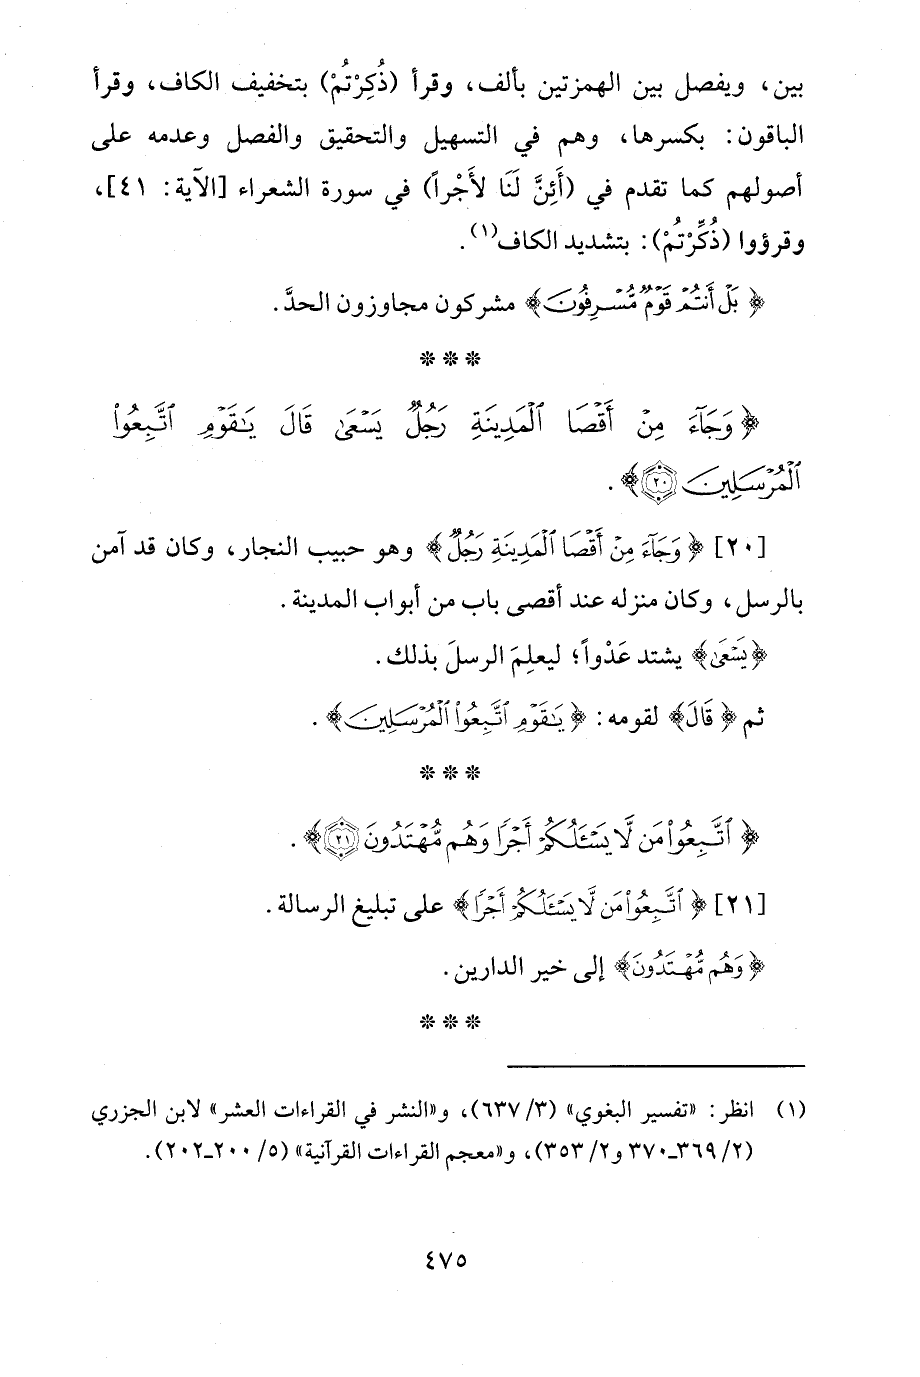 بين، ويفصل بين الهمزتين بألف، وقرأ (ذُكِرْتُمْ) بتخفيف الكاف، وقرأ
الباقون: بكسرها، وهم في التسهيل والتحقيق والفصل وعدمه على
أصولهم كما تقدم في (أَئِنَّ لَنَا لأَجْراً) في سورة الشعراء [الآية: ٤١]،
وقرؤوا (ذُكِّرْتُمْ): بتشديد الكاف(١).
﴿بَلْ أَنتُمْ قَوْمٌ مُّسْرِفُونَ﴾ مشركون مجاوزون الحدَّ.
***
﴿وَجَآءَ مِنْ أَقْصَا ٱلْمَدِينَةِ رَجُلٌ يَسْعَىٰ قَالَ يَٰقَوْمِ ٱتَّبِعُوا۟
ٱلْمُرْسَلِينَ ٢٠﴾.
[٢٠] ﴿وَجَآءَ مِنْ أَقْصَا ٱلْمَدِينَةِ رَجُلٌ﴾ وهو حبيب النجار، وكان قد آمن
بالرسل، وكان منزله عند أقصى باب من أبواب المدينة.
﴿يَسْعَىٰ﴾ يشتد عَدْواً؛ ليعلِمَ الرسلَ بذلك.
ثم ﴿قَالَ﴾ لقومه: ﴿يَٰقَوْمِ ٱتَّبِعُوا۟ ٱلْمُرْسَلِينَ﴾.
***
﴿ٱتَّبِعُوا۟ مَن لَّا يَسْـَٔلُكُمْ أَجْرًا وَهُم مُّهْتَدُونَ ٢١﴾.
[٢١] ﴿ٱتَّبِعُوا۟ مَن لَّا يَسْـَٔلُكُمْ أَجْرًا﴾ على تبليغ الرسالة.
﴿وَهُم مُّهْتَدُونَ﴾ إلى خير الدارين.
***
(١) انظر: «تفسير البغوي» (٣/ ٦٣٧)، و«النشر في القراءات العشر» لابن الجزري
(٢/ ٣٦٩ـ٣٧٠ و٢/ ٣٥٣)، و«معجم القراءات القرآنية» (٥/ ٢٠٠ـ٢٠٢).
٤٧٥